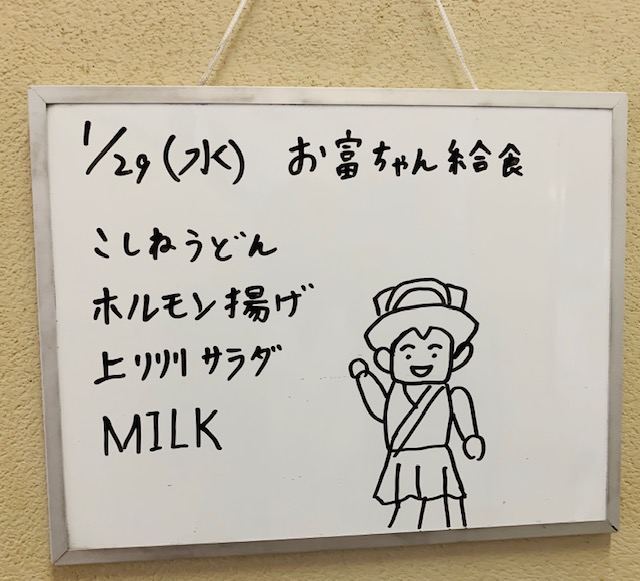 1/29(水) お富ちゃん給食
こしねうどん
ホルモン揚げ
上州サラダ
MILK